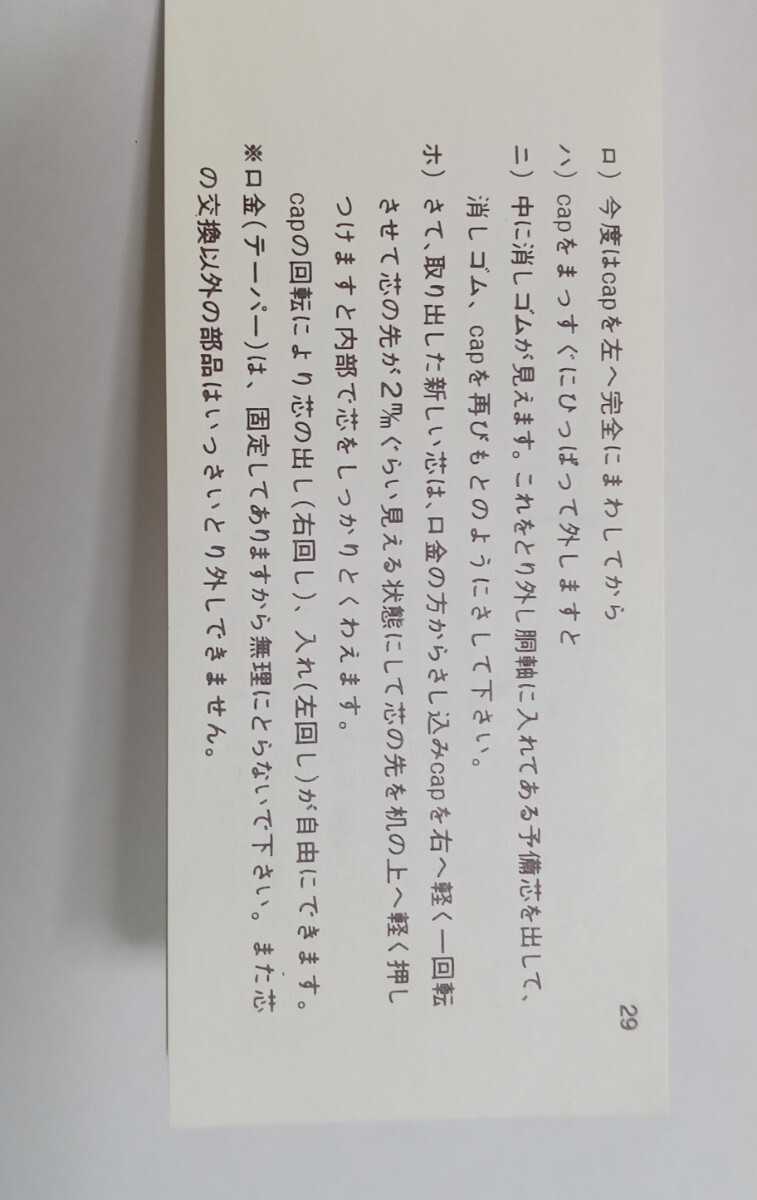 29
ロ）今度はcapを左へ完全にまわしてから
ハ）capをまっすぐにひっぱって外しますと
ニ）中に消しゴムが見えます。これをとり外し胴軸に入れてある予備芯を出して、
消しゴム、capを再びもとのようにさして下さい。
ホ）さて、取り出した新しい芯は、口金の方からさし込みcapを右へ軽く一回転
させて芯の先が2㎜ぐらい見える状態にして芯の先を机の上へ軽く押し
つけますと内部で芯をしっかりとくわえます。
capの回転により芯の出し(右回し)、入れ(左回し)が自由にできます。
※口金(テーパー)は、固定してありますから無理にとらないで下さい。また芯
の交換以外の部品はいっさいとり外しできません。